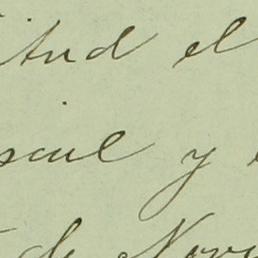 itud el
scul y
de Nov